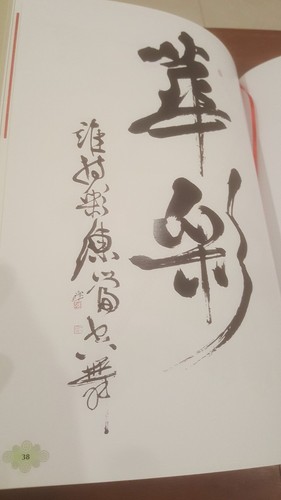 華彩
誰持彩練當空舞
38